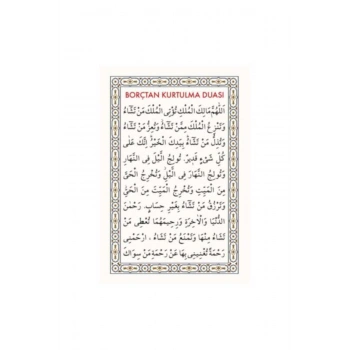 BORÇTAN KURTULMA DUASI
اَللّٰهُمَّ مَالِكَ الْمُلْكِ تُؤْتِى الْمُلْكَ مَنْ تَشَٓاءُ
وَتَنْزِعُ الْمُلْكَ مِمَّنْ تَشَٓاءُ وَتُعِزُّ مَنْ تَشَٓاءُ
وَتُذِلُّ مَنْ تَشَٓاءُ بِيَدِكَ الْخَيْرُ اِنَّكَ عَلٰى
كُلِّ شَىْءٍ قَدِيرٌ. تُولِجُ الَّيْلَ فِى النَّهَارِ
وَتُولِجُ النَّهَارَ فِى الَّيْلِ وَتُخْرِجُ الْحَىَّ
مِنَ الْمَيِّتِ وَتُخْرِجُ الْمَيِّتَ مِنَ الْحَىِّ
وَتَرْزُقُ مَنْ تَشَٓاءُ بِغَيْرِ حِسَابٍ. رَحْمٰنَ
الدُّنْيَا وَالْاٰخِرَةِ وَرَحِيمَهُمَا تُعْطِى مَنْ
تَشَٓاءُ مِنْهَا وَتَمْنَعُ مَنْ تَشَٓاءُ . اِرْحَمْنِى
رَحْمَةً تُغْنِينِى بِهَا عَنْ رَحْمَةِ مَنْ سِوَاكَ